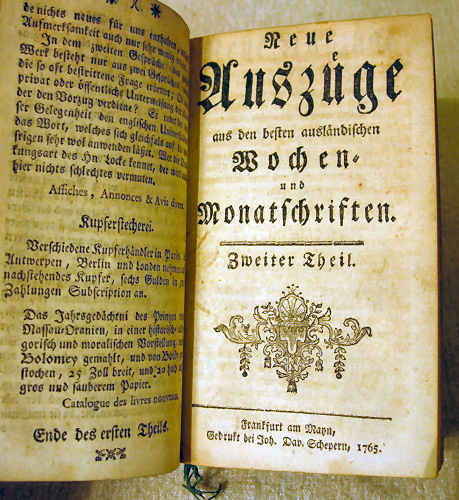 de nichts neues für uns enthalten
Aufmerksamkeit auch nur sehr wenig
In dem zweiten Gespräche
Werk besteht nur aus zwei Gesprächen
die so oft bestrittene Frage erörtert,
privat oder öffentliche Unterweisung
der den Vorzug verdiene? Er
ser Gelegenheit den englischen
das Wort, welches sich gleichfals auf
srigen sehr wol anwenden läßt. Wer die
kungsart des Hn. Locke kennet, der
hier nichts schlechtes vermuten.
Affiches, Annonces & Avis divers.
Kupferstecherei.
Verschiedene Kupferhändler in Paris,
Antwerpen, Berlin und Londen nehmen
nachstehendes Kupfer, sechs Gulden in
Zahlungen Subscription an.
Das Jahrsgedächtni des Prinzen von
Nassau-Oranien, in einer historisch-
gorisch und moralischen Vorstellung
Bolomey gemahlt, und von
stochen, 25 Zoll breit, und 20 hoch
gros und sauberem Papier.
Catalogue des livres nouveaux.
Ende des ersten Theils.
Neue
Auszüge
aus den besten ausländischen
Wochen-
und
Monatschriften.
Zweiter Theil.
Frankfurt am Mayn,
Gedrukt bei Joh. Dav. Scheyern, 1765.